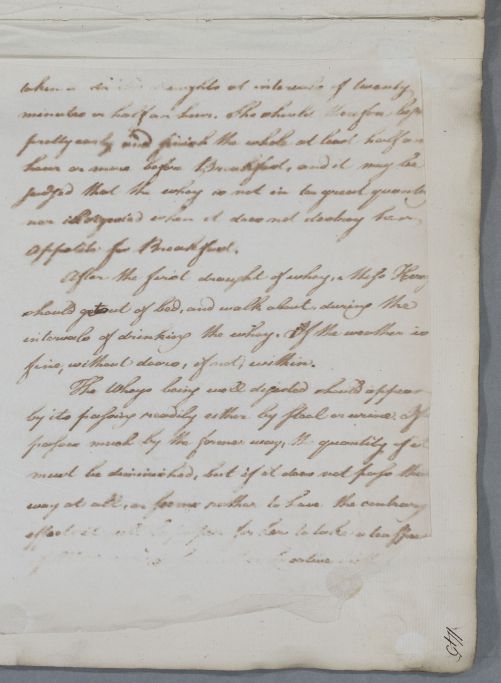 taken in di draughts at intervals of twenty
minutes or half an hour. She should therefore begin
pretty early and finish the whole at least half an
hour or more before Breakfast, and it may be
judged that the whey is not in too great quantity
nor ill digested when it does not destroy her
appetite for Breakfast.
After the first draught of whey, Miss
should get out of bed, and walk about, during the
intervals of drinking the whey. If the weather is
fine, without doors, if not, within.
The Whey being well digested should appear
by its passing readily either by stool or urine. If
passes much by the former way, the quantity of it
must be diminished, but if it does not pass that
way at all, or seems rather to have the contrary
effect it will be for her to take a tea
145